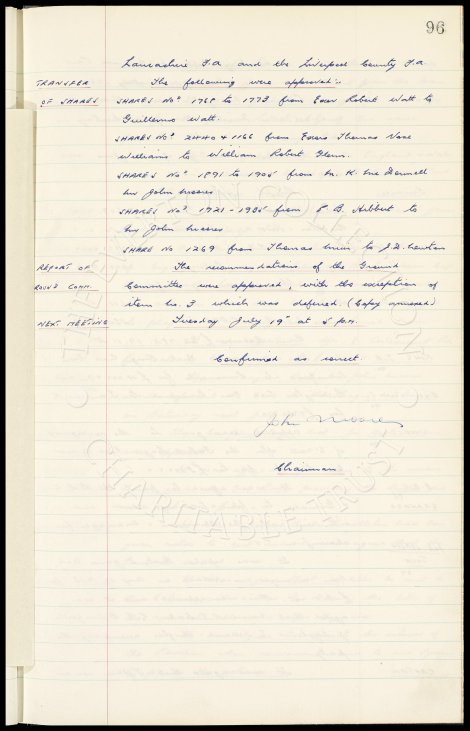 96
Lancashire F.A. and the Liverpool County F.A.
TRANSFER The following were approved:-
OF SHARES. SHARES Nos 1768 to 1773 from Exor Robert Watt to
Guillermo Watt.
SHARES Nos 2440 & 1166 from Exors Thomas
Williams to William Robert Glenn.
SHARES Nos 1891 to 1905 from
John Moores
SHARES Nos 1921-1935 from B. Hibbert to
John Moores
SHARE No 1269 from Thomas to
REPORT OF The recommendations of the Ground
COMM. Committee were approved, with the exception of
item No. 3 which was deferred. (Copy annexed)
NEXT MEETING Tuesday July 19th at 5 p.m.
Confirmed as correct.
John Moores
Chairman
THE EVERTON COLLECTION
CHARITABLE TRUST